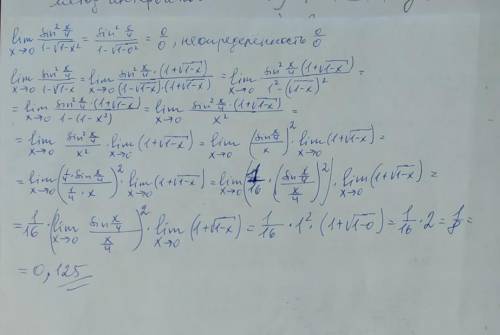 метод интервалов
lim x→0 sin² x/4 / 1-√1-x² = sin² 0/4 / 1-√1-0² = 0/0, неопределенность 0/0
lim x→0 sin² x/4 / 1-√1-x = lim x→0 sin² x/4 · (1+√1-x) / (1-√1-x)·(1+√1-x) = lim x→0 sin² x/4 (1+√1-x) / 1²-(√1-x)² =
= lim x→0 sin² x/4 · (1+√1-x) / 1-(1-x²) = lim x→0 sin² x/4 · (1+√1-x) / x² =
= lim x→0 sin² x/4 / x² · lim x→0 (1+√1-x) = lim x→0 (sin x/4 / x)² · lim x→0 (1+√1-x) =
= lim x→0 (1/4 · sin x/4 / 1/4 · x)² · lim x→0 (1+√1-x) = lim x→0 (1/16 · (sin x/4 / x/4)²) · lim x→0 (1+√1-x) =
= 1/16 · (lim x→0 sin x/4 / x/4)² · lim x→0 (1+√1-x) = 1/16 · 1² · (1+√1-0) = 1/16 · 2 = 1/8 =
= 0,125